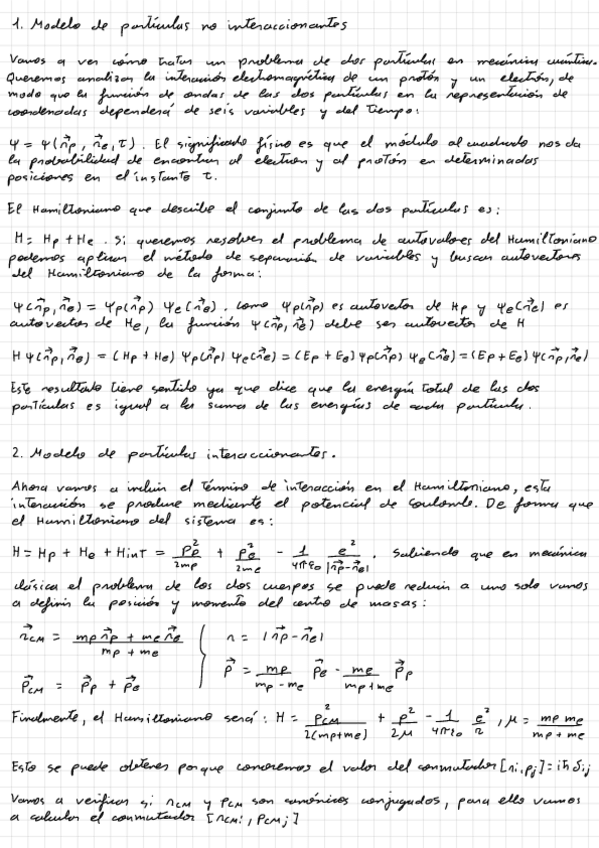 1. Modelo de partículas no interaccionantes
Vamos a ver cómo tratar un problema de dos partículas en mecánica cuántica.
Queremos analizar la interacción electromagnética de un protón y un electrón, de
modo que la función de ondas de las dos partículas en la representación de
coordenadas dependerá de seis variables y del tiempo:
Ψ = Ψ(r⃗p, r⃗e, t). El significado físico es que el módulo al cuadrado nos da
la probabilidad de encontrar al electron y al protón en determinadas
posiciones en el instante t.
El Hamiltoniano que describe el conjunto de las dos partículas es:
H = Hp + He. Si queremos resolver el problema de autovalores del Hamiltoniano
podemos aplicar el método de separación de variables y buscar autovectores
del Hamiltoniano de la forma:
Ψ(r⃗p, r⃗e) = Ψp(r⃗p) Ψe(r⃗e). Como Ψp(r⃗p) es autovector de Hp y Ψe(r⃗e) es
autovector de He, la función Ψ(r⃗p, r⃗e) debe ser autovector de H
HΨ(r⃗p, r⃗e) = (Hp + He) Ψp(r⃗p) Ψe(r⃗e) = (Ep + Ee) Ψp(r⃗p) Ψe(r⃗e) = (Ep + Ee) Ψ(r⃗p, r⃗e)
Este resultado tiene sentido ya que dice que la energía total de las dos
partículas es igual a la suma de las energías de cada partícula.
2. Modelo de partículas interaccionantes.
Ahora vamos a incluir el término de interacción en el Hamiltoniano, esta
interacción se produce mediante el potencial de Coulomb. De forma que
el Hamiltoniano del sistema es:
H = Hp + He + Hint = p⃗p²/2mp + p⃗e²/2me - 1/4πε₀ e²/|r⃗p - r⃗e|. Sabiendo que en mecánica
clásica el problema de los dos cuerpos se puede reducir a uno solo vamos
a definir la posición y momento del centro de masas:
r⃗CM = (mp r⃗p + me r⃗e)/(mp + me) { r = |r⃗p - r⃗e|
p⃗CM = p⃗p + p⃗e { p⃗ = mp/(mp - me) p⃗e - me/(mp + me) p⃗p
Finalmente, el Hamiltoniano será: H = pCM²/2(mp+me) + p²/2μ - 1/4πε₀ e²/r, μ = mp me/(mp + me)
Esto se puede obtener porque conocemos el valor del conmutador [ri, pj] = iħ δij
Vamos a verificar si rCM y pCM son canónicos conjugados, para ello vamos
a calcular el conmutador [rCMi, pCMj]